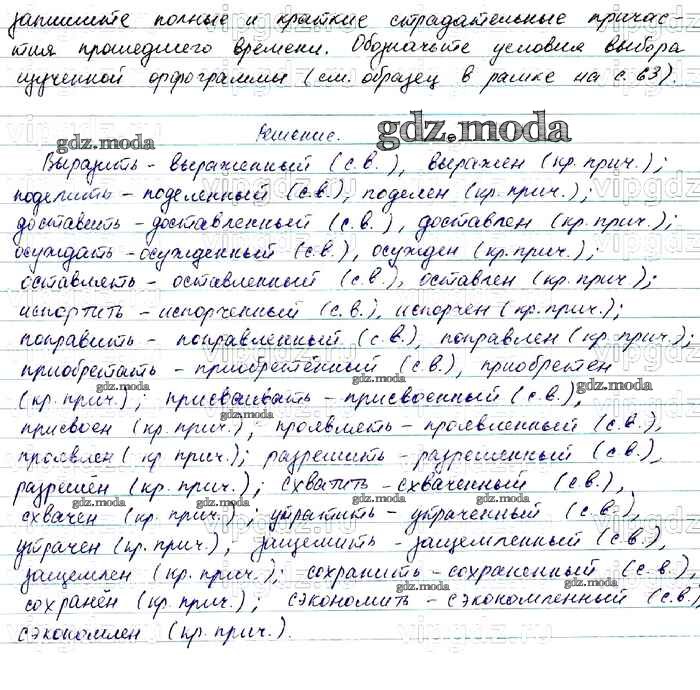 запишите полные и краткие страдательные причас-
тия прошедшего времени. Обозначьте условия выбора
изученной орфограммы (см. образец в рамке на с. 63).
Решение.
gdz.moda
gdz.moda
Выразить - выраженный (с.в.), выражен (кр. прич.);
поделить - поделенный (с.в.), поделен (кр. прич.);
доставить - доставленный (с.в.), доставлен (кр. прич.);
осуждать - осужденный (с.в.), осужден (кр. прич.);
оставлять - оставленный (с.в.), оставлен (кр. прич.);
испортить - испорченный (с.в.), испорчен (кр. прич.);
поправить - поправленный (с.в.), поправлен (кр. прич.);
приобретать - приобретённый (с.в.), приобретен
gdz.moda gdz.moda gdz.moda
(кр. прич.); присваивать - присвоенный (с.в.),
gdz.moda
присвоен (кр. прич.); проявлять - проявленный (с.в.),
проявлен (кр. прич.); разрешить - разрешенный (с.в.),
разрешён (кр. прич.); схватить - схваченный (с.в.),
gdz.moda gdz.moda gdz.moda
схвачен (кр. прич.); утратить - утраченный (с.в.),
утрачен (кр. прич.); защемить - защемленный (с.в.),
защемлен (кр. прич.); сохранить - сохраненный (с.в.),
gdz.moda gdz.moda gdz.moda
сохранён (кр. прич.); сэкономить - сэкономленный (с.в.)
сэкономлен (кр. прич.).